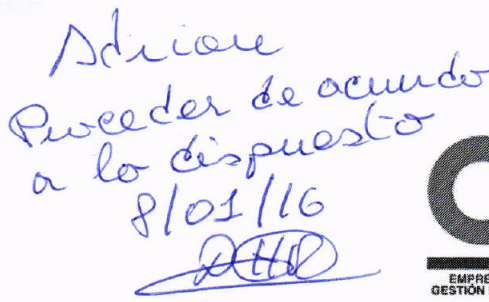 Adriana
Proceder de acuerdo
a lo dispuesto
8/01/16
EMPRE
GESTIÓN